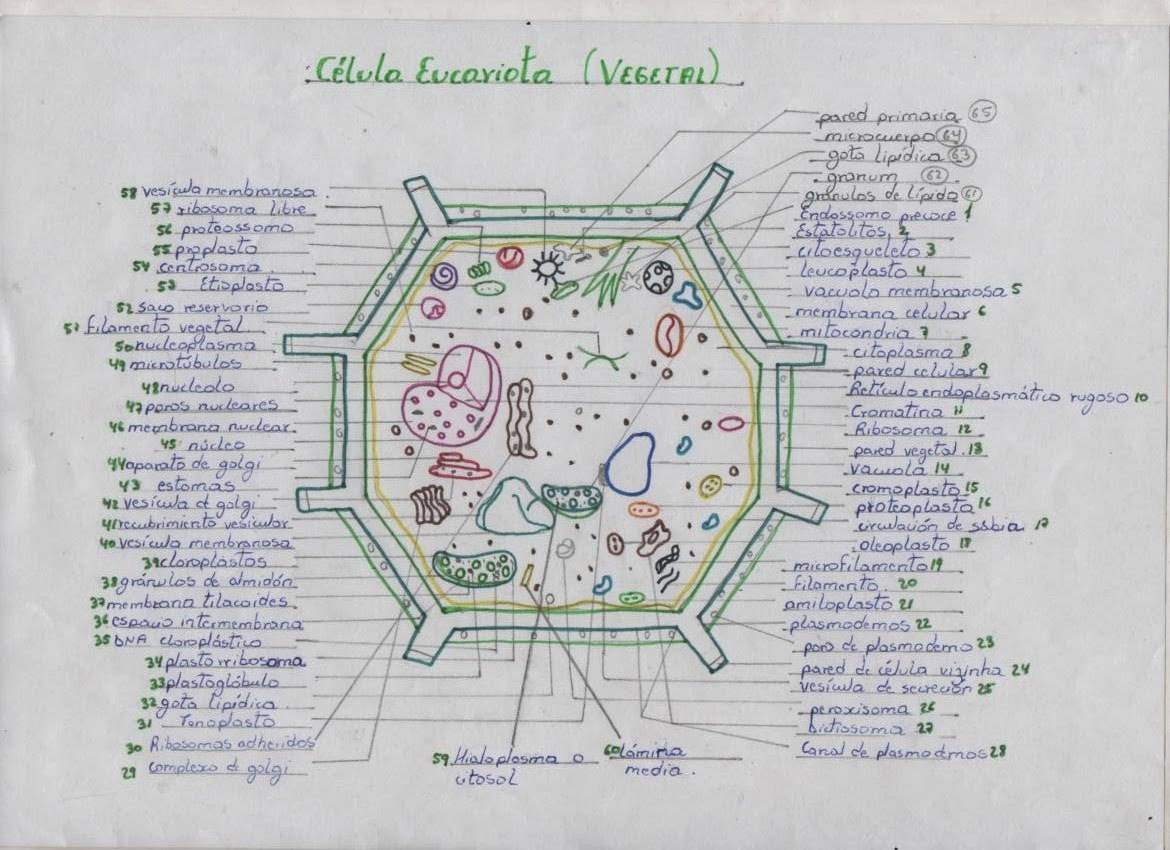 Célula Eucariota (VEGETAL)
58 vesícula membranosa
57 ribosoma libre
56 proteossomo
55 proplasto
54 centrosoma
53 Etioplasto
52 Saco reservorio
51 filamento vegetal
50 nucleoplasma
49 microtúbulos
48 nucleolo
47 poros nucleares
46 membrana nuclear
45 núcleo
44 aparato de golgi
43 estomas
42 vesícula d golgi
41 recubrimiento vesicular
40 vesícula membranosa
39 cloroplastos
38 gránulos de almidón
37 membrana tilacoides
36 espacio intermembrana
35 DNA cloroplástico
34 plasto rribosoma
33 plastoglóbulo
32 gota lipídica
31 Tonoplasto
30 Ribosomas adheridos
29 Complexo d golgi
59 Hialoplasma o
citosol
60 lámina
media.
pared primaria 65
microcuerpo 64
gota lipídica 63
granum 62
gránulos de lípido 61
Endossomo precoce 1
Estatolitos 2
citoesqueleto 3
leucoplasto 4
vacuola membranosa 5
membrana celular 6
mitocondria 7
citoplasma 8
pared celular 9
Retículo endoplasmático rugoso 10
Cromatina 11
Ribosoma 12
pared vegetal 13
vacuola 14
cromoplasto 15
proteoplasta 16
circulación de ssbia 17
oleoplasto 18
microfilamento 19
filamento 20
amiloplasto 21
plasmodemos 22
poro de plasmodemo 23
pared de célula vizinha 24
vesícula de secreción 25
peroxisoma 26
Dictiossoma 27
Canal de plasmodemos 28